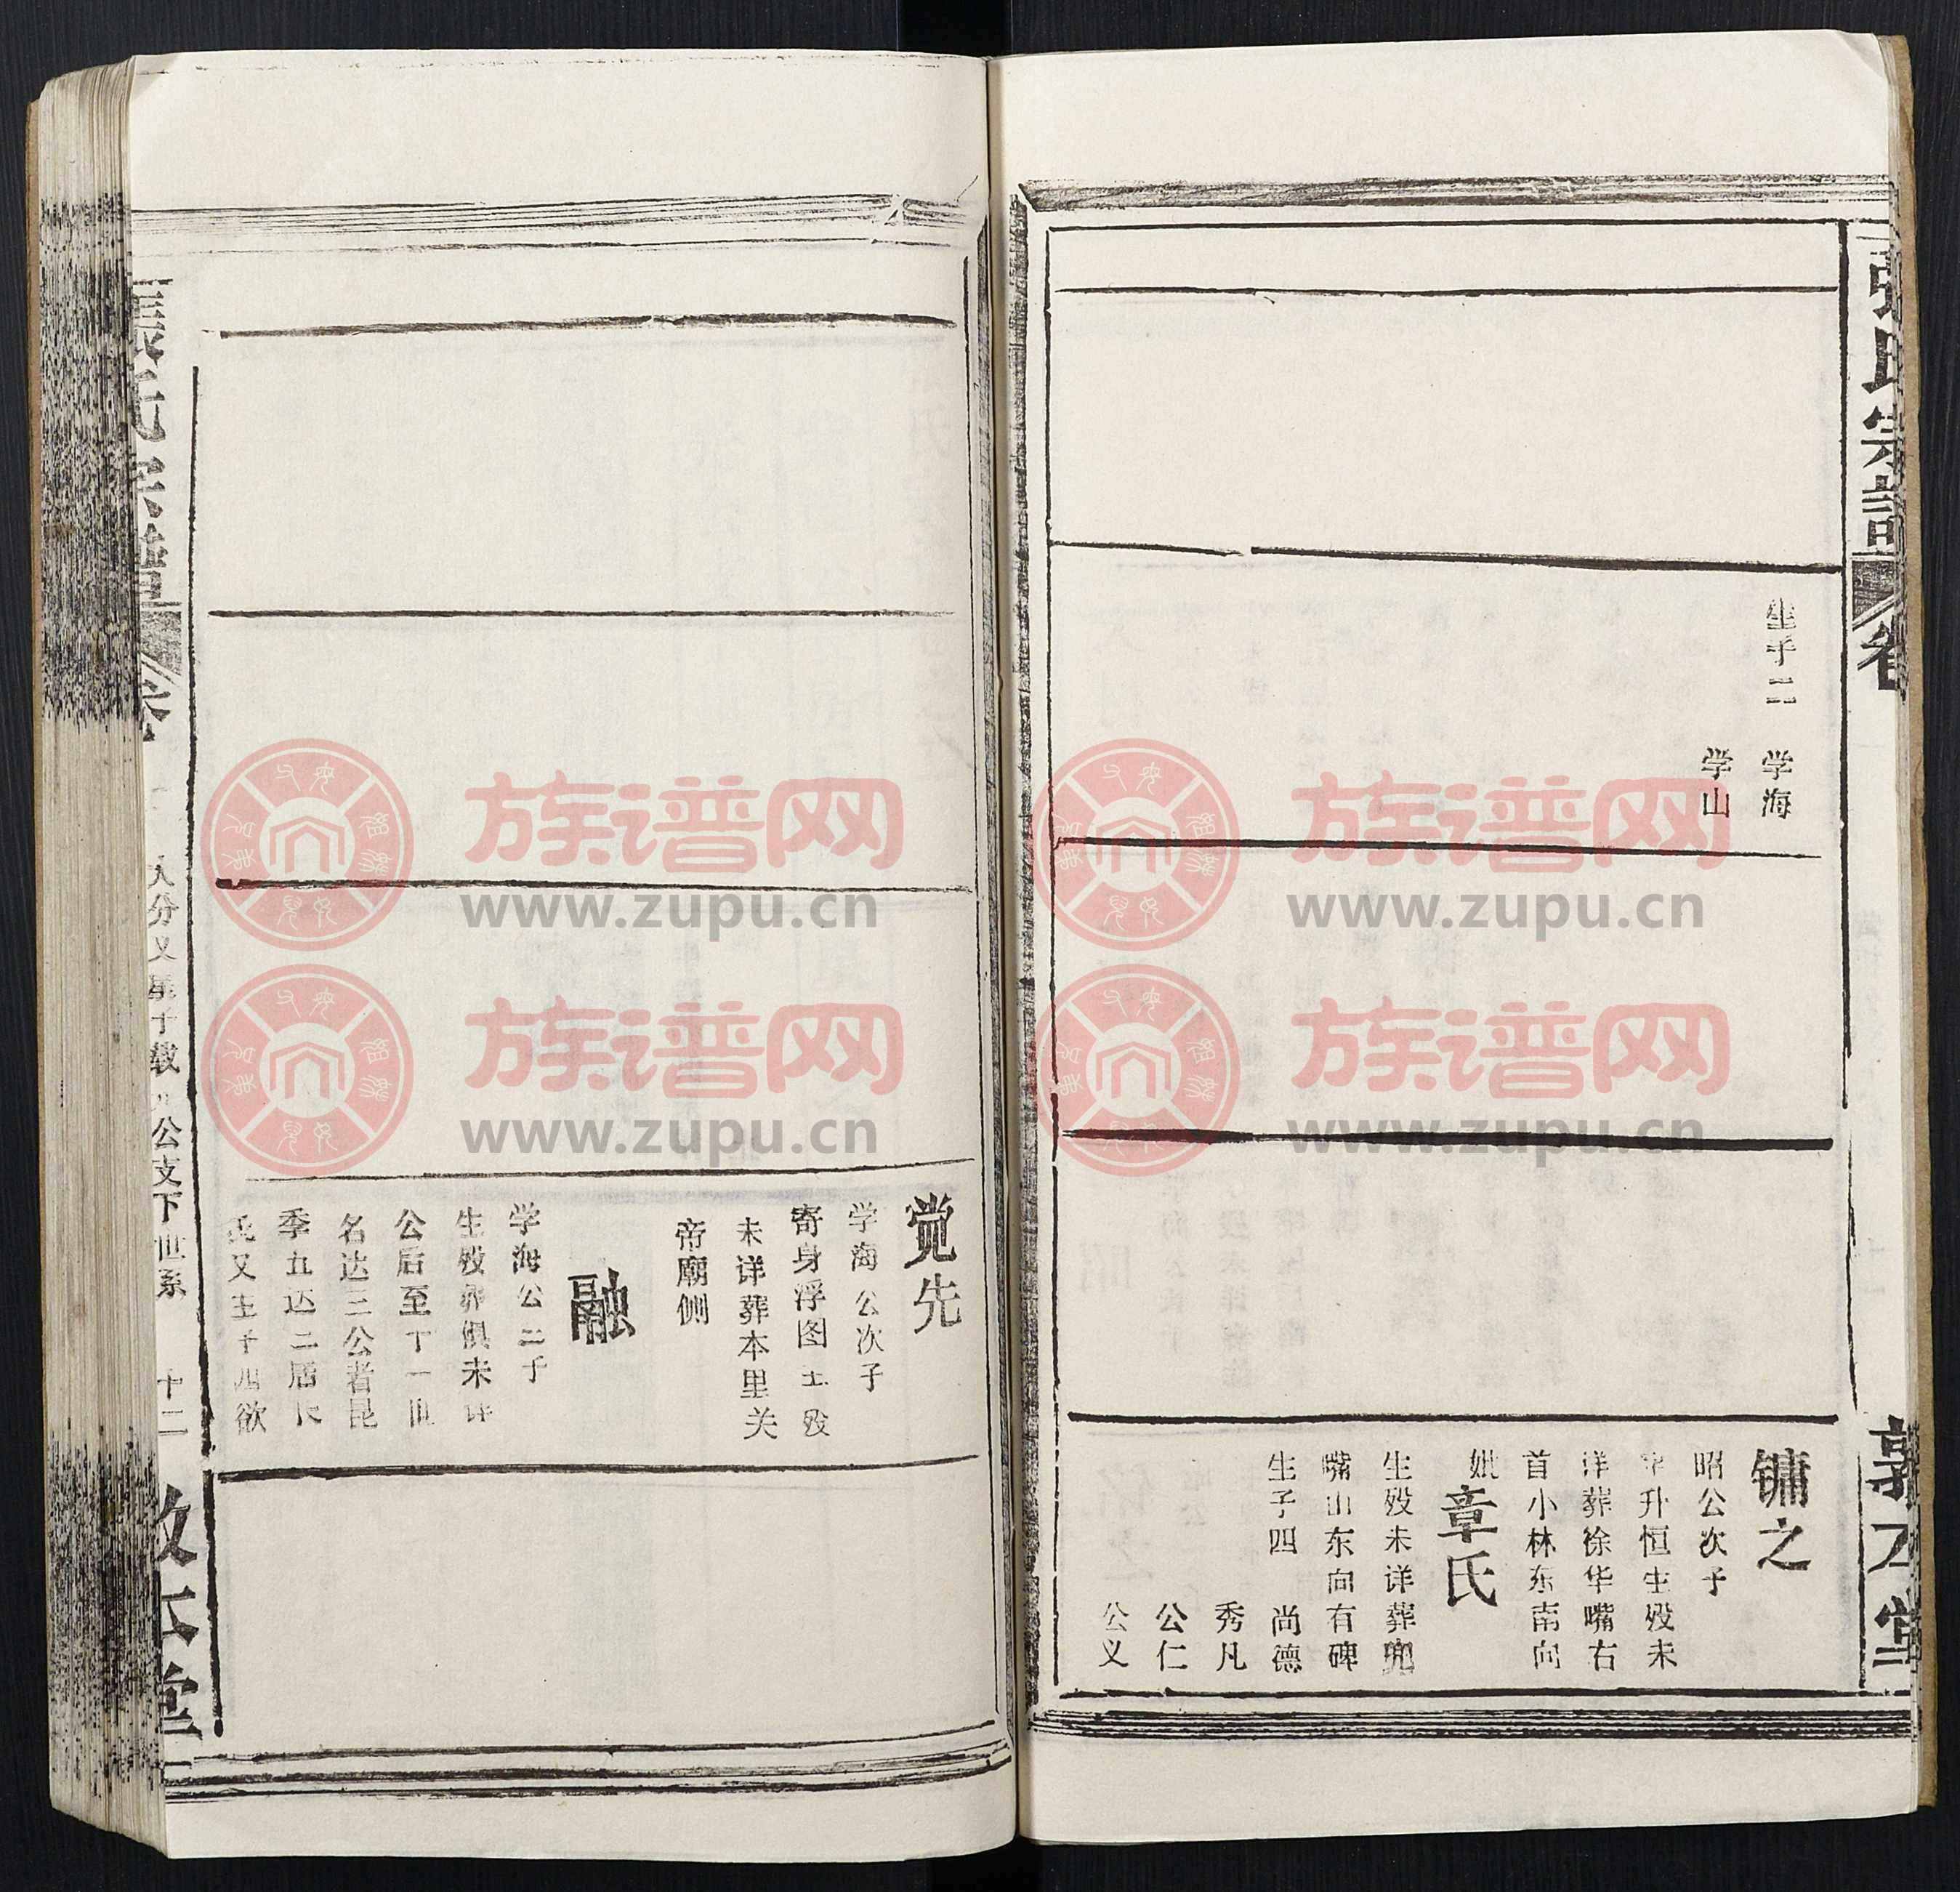 张氏宗譜
卷
生子二 学海
学山
镛之
昭公次子
字升恒生殁未
详葬徐华嘴右
首小林东南向
妣章氏
生殁未详葬兜
嘴山东向有碑
生子四 尚德
秀凡
公仁
公义
堂
觉先
学海公次子
寄身浮图士殁
未详葬本里关
帝廟侧
融
学海公三子
生殁葬俱未详
公后至丁一世
名达三公者昆
季五达三居长
氏又生子四欲
大分义
子载
公支下世系
十二
敦本堂
族谱网
www.zupu.cn
族谱网
www.zupu.cn
族谱网
www.zupu.cn
族谱网
www.zupu.cn